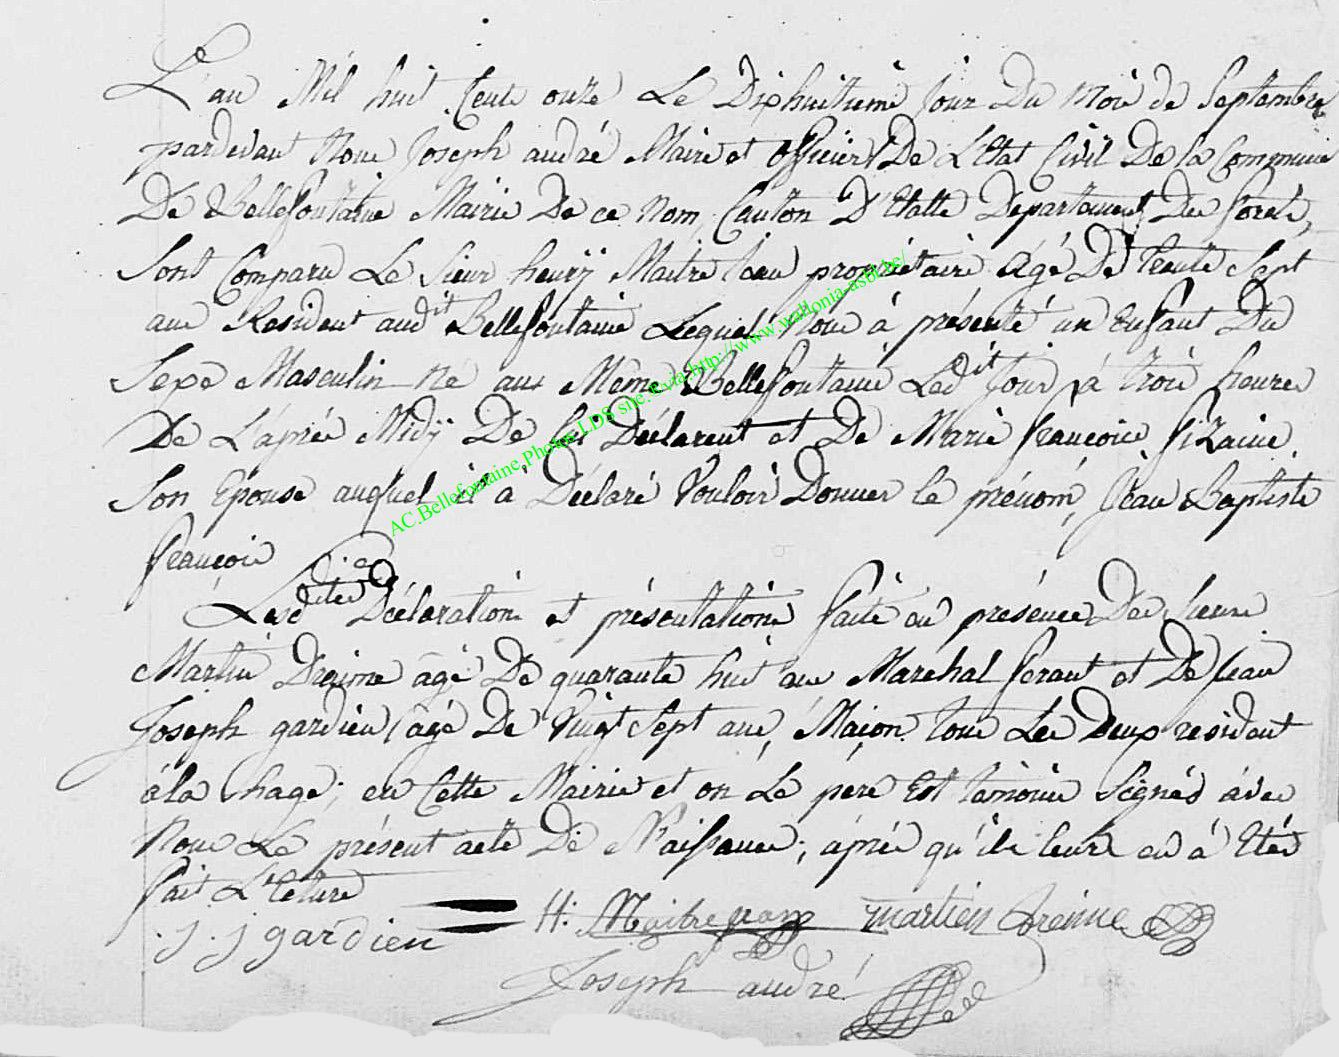 L'an Mil huit Cent onze Le Dixhuitieme jour Du Mois de Septembre
pardevant Nous Joseph andré Maire et officier De L'Etat Civil De la Commune
De Bellefontaine Mairie De ce Nom, Canton D'Etalle Departement Des forets,
Sont Comparu Le Sieur henrÿ Maitre jean propriétaire Agé De trente Sept
ans Resident audit Bellefontaine Lequel Nous à présenté un Enfant Du
Sexe Masculin né aux Même Bellefontaine Ledit Jour à trois heures
De L'aprés Midÿ De lui Déclarent et De Marie françoise fizaine
Son Epouse auquel il à Déclaré Vouloir Donner le prénom, Jean Baptiste
françois
Lesdites Déclaration et présentation faite en présence De Sieur
Martin Dreime agé De quarante huit ans Maréchal ferant et De Jean
Joseph gardien agé De Vingt Sept ans, Maçon tous Les Deux resident
à la hage; en Cette Mairie et on Le pére Est témoins Signés àvec
Nous Le présent acte De Naissance; àprés qu'il leurs en à Etés
fait L'Ecture
j. j gardien H: Maitrejean martien Dreime
Joseph andré
AC.Bellefontaine,Photos LDS sne.be via http://www.wallonia-asbl.be/